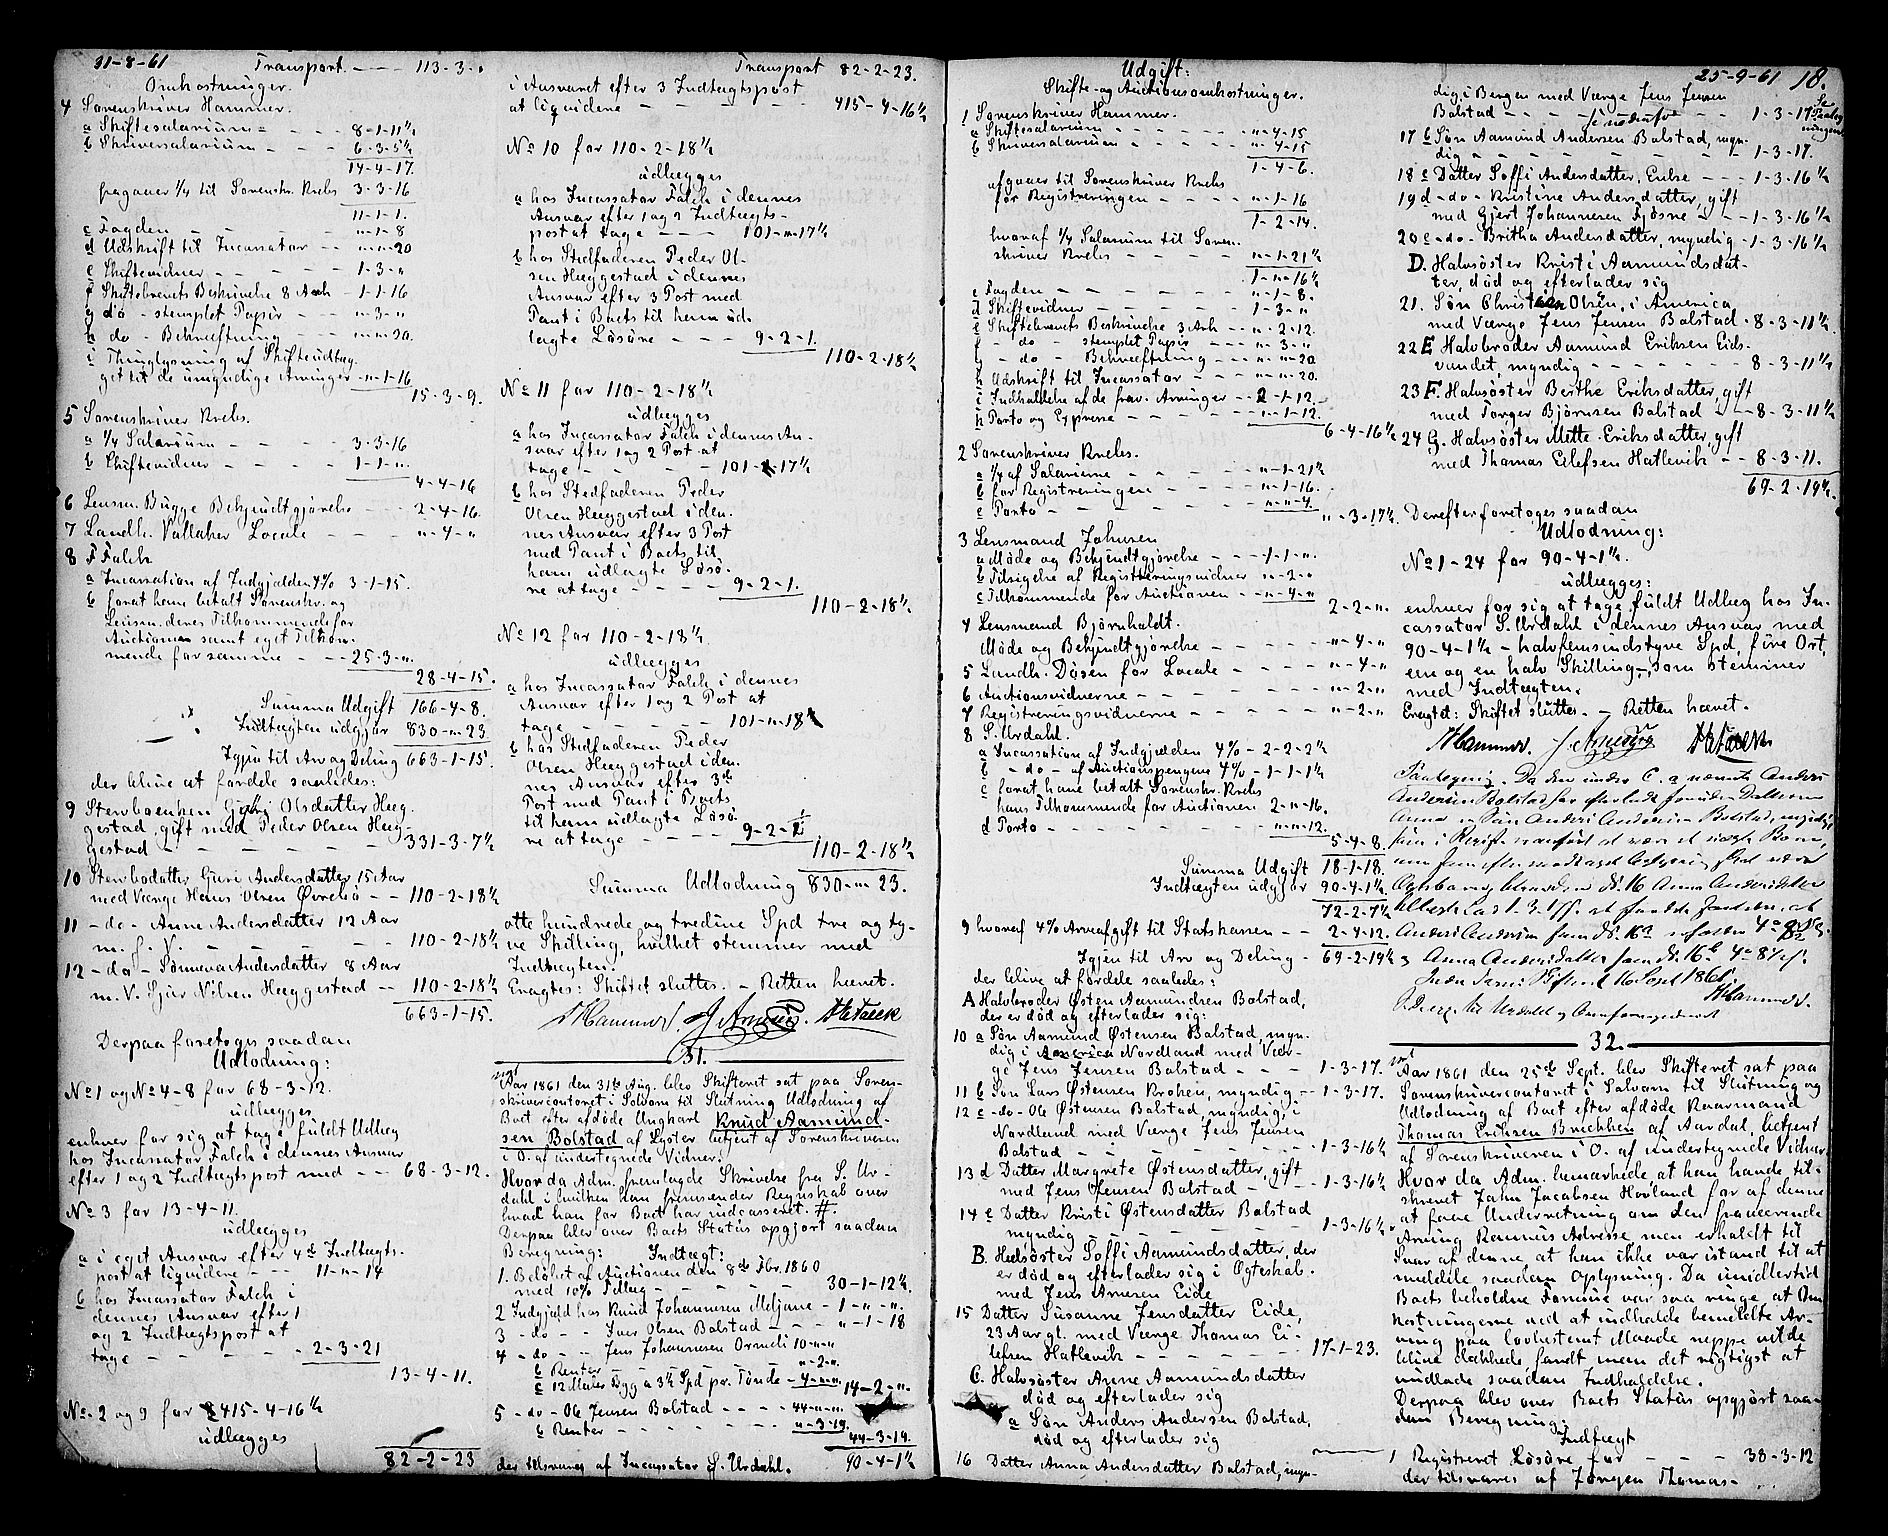 31-8-61 Transport. — — — 113-3-"
Omkostninger.
4 Sorenskriver Hammer.
a Skiftesalarium — — — 8-1-11½
b Skriversalarium — — — 6-3-5½
14-4-17.
fragaaer ¼ til Sorenskr. Krebs 3-3-16
11-1-1.
c Fogden — — — "-1-8
d Udskrift til Incassator — "-"-20
e Skiftevidner — — — — 1-3-"
f Skiftebrevets Beskrivelse 8 Ark — 1-1-16
g do — stemplet Papir — — "-3-"
h do — Bekræftning — — "-"-20.
i Thinglysning af Skifteudlæg-
get til de umyndige Arvinger "-1-16
15-3-9.
5 Sorenskriver Krebs.
a ¼ Salarium — — — — 3-3-16
b Skiftevidner — — — — 1-1-"
4-4-16
6 Lensm. Bugge Bekjendtgjørelse — — 2-4-16.
7 Landh. Vallaker Locale — — — "-4-"
8 F Falch
a Incassation af Indgjælden 4% 3-1-15.
b forat have betalt Sorenskr. og
Lensm. deres Tilkommende for
Auctionen samt eget Tilkom-
mende for samme — — 25-3-"
28-4-15.
Summa Udgift 166-4-8.
Indtægten udgjør 830-"-23
Igjen til Arv og Deling 663-1-15.
der blive at fordele saaledes:
9 Stervboenken Gjertri Olsdatter Heg-
gestad, gift med Peder Olsen Heg-
gestad — — — — — — 331-3-7½
10 Stervbodatter Guri Andersdatter 15 Aar
med Værge Hans Olsen Øvrebø — — 110-2-18½
11 — do — Anne Andersdatter 12 Aar
m. f. V. — — — — — 110-2-18½
12 — do — Sønneva Andersdatter 8 Aar
m. V. Sjur Nilsen Heggestad — — 110-2-18½
663-1-15.
Derpaa foretoges saadan
Udlodning:
No 1 og No 4-8 for 68-3-12.
udlægges
enhver for sig at tage fuldt Udlæg
hos Incassator Falch i dennes Ansvar
efter 1 og 2 Indtægtspost med — — 68-3-12.
No 3 for 13-4-11.
udlægges
a i eget Ansvar efter 4de Indtægts-
post at liqvidere — — — 11-"-14
b hos Incassator Falch i
dennes Ansvar efter 1
og 2 Indtægtspost at
tage — — — — — — 2-3-21
13-4-11.
No 2 og 9 for 415-4-16½
udlægges
82-2-23
Transport 82-2-23.
i Ansvaret efter 3 Indtægtspost
at liqvidere — — — — — 415-4-16½
No 10 for 110-2-18½
udlægges
a hos Incassator Falch i dennes
Ansvar efter 1 og 2 Indtægts-
post at tage — — — 101-"-17½
b hos Stedfaderen Peder Ol-
sen Heggestad i dennes
Ansvar efter 3 Post med
Pant i Boets til ham ud-
lagte Løsøre — — — 9-2-1.
110-2-18½
No 11 for 110-2-18½
udlægges
a hos Incassator Falch i dennes An-
svar efter 1 og 2 Post at
tage — — — — — 101-"-17½
b hos Stedfaderen Peder
Olsen Heggestad i den-
nes Ansvar efter 3 Post
med Pant i Boets til
ham udlagte Løsø-
re at tage — — — — 9-2-1.
110-2-18½
No 12 for 110-2-18½
udlægges
a hos Incassator Falch i dennes
Ansvar efter 1 og 2 Post at
tage — — — — — 101-"-18
b hos Stedfaderen Peder
Olsen Heggestad i den-
nes Ansvar efter 3de
Post med Pant i Boets
til ham udlagte Løsø-
re at tage — — — — 9-2-½
110-2-18½
Summa Udlodning 830-"-23.
otte hundrede og tredive Spd tre og ty-
ve Skilling, hvilket stemmer med
Indtægten.
Eragtes: Skiftet sluttes. — Retten hævet.
Hammer. J. Arnesen. H Falck
31.
Aar 1861 den 31te Aug. blev Skifteret sat paa Soren-
skrivercontoret i Solvorn til Slutning Udlodning af
Boet efter afdøde Ungkarl Knud Aamund-
sen Bolstad af Lyster betjent af Sorenskriveren
i O. af undertegnede Vidner.
Hvor da Adm. fremlagde Skrivelse fra S. Ur-
dahl i hvilken han fremsender Regnskab over
hvad han for Boet har indcasseret. #.
Derpaa blev over Boets Status opgjort saadan
Beregning: Indtægt:
1. Beløbet af Auctionen den 8de Fbr. 1860
med 10% Tillæg — — — — — 30-1-12½
2 Indgjæld hos Knud Johannesen Meljane — 1-"-".
3 — do — — Iver Olsen Bolstad — — — "-1-18
4 — do — — Jens Johannesen Ormeli 10-"-"
b Renter — — — "-2-"
c 12 Mæler Byg a 3½ Spd pr. Tønde — 4-"-"
14-2-"
5 — do — Ole Jensen Bolstad — — — — 44-"-"
b Renter — — — — — — "-3-19.
44-3-19.
der tilsvares af Incassator S. Urdahl. 90-4-1½
Udgift:
Skifte- og Auctionsomkostninger.
1 Sorenskriver Hammer.
a Skiftesalarium — — — — "-4-15
b Skriversalarium — — — — "-4-15
1-4-6.
afgaaer til Sorenskriver Krebs
for Registreringen — — — — "-1-16
1-2-14.
hvoraf ¼ Salarium til Soren-
skriver Krebs — — — "-1-21½
1-"-16½
c Fogden — — — — — "-1-8.
d Skiftevidner — — — — 1-3-"
e Skiftebrevets Beskrivelse 3 Ark — "-2-12.
f — do — stemplet Papir — — "-3-"
g — do — Bekræftning — — "-"-20
h Udskrift til Incassator — — — "-"-20.
i Indkaldelse af de frav. Arvinger — 2-1-12.
k Porto og Expresse — — — — "-1-12.
6-4-16½
2 Sorenskriver Krebs.
a ¼ af Salarierne — — — — "-1-21½
b for Registreringen — — — — "-1-16.
c Porto — — — — — — "-"-4.
"-3-17½
3 Lensmand Johnsen
a Møde og Bekjendtgjørelse — — 1-1-"
b Tilsigelse af Registreringsvidner "-2-"
c Tilkommende for Auctionen — — "-4-"
2-2-".
4 Lensmand Bjørnholdt.
Møde og Bekjendtgjørelse — — — — "-4-"
5 Landh. Døsen for Locale — — — "-4-"
6 Auctionsvidnerne — — — — — "-2-"
7 Registreringsvidnerne — — — — "-2-"
8 S. Urdahl.
a Incassation af Indgjælden 4% — 2-2-2½
b — do — af Auctionspengene 4% — 1-1-1½
c forat have betalt Sorenskr. Krebs
hans Tilkommende for Auctionen 2-"-16.
d Porto — — — — — "-"-12.
5-4-8.
Summa Udgift 18-1-18.
Indtægten udgjør 90-4-1½
72-2-7½
9 hvoraf 4% Arveafgift til Statskassen — — 2-4-12.
Igjen til Arv og Deling — 69-2-19½
der blive at fordele saaledes:
A Halvbroder Østen Aamundsen Bolstad,
der er død og efterlader sig:
10 a Søn Aamund Østensen Bolstad, myn-
dig i Nordland med Vær-
ge Jens Jensen Bolstad — — — 1-3-17.
11 b Søn Lars Østensen Kroken, myndig — 1-3-17.
12 c — do — Ole Østensen Bolstad, myndig, i
Nordland med Værge Jens Jensen
Bolstad — — — — — — — 1-3-16½
13 d Datter Margrete Østensdatter, gift
med Jens Jensen Bolstad — — — 1-3-16½
14 e Datter Kristi Østensdatter Bolstad
myndig — — — — — — — 1-3-16½
B. Helsøster Soffi Aamundsdatter, der
er død og efterlader sig i Egteskab
med Jens Arnesen Eide
15 Datter Susanne Jensdatter Eide,
23 Aar gl. med Værge Thomas Ei-
lefsen Hatlevik — — — — — — 17-1-23.
C. Halvsøster Anne Aamundsdatter
død og efterlader sig
a Søn Anders Andersen Bolstad,
død og efterlader sig
16 Datter Anna Andersdatter Bolstad, myn-
25-9-61 18.
dig i Bergen med Værge Jens Jensen
Bolstad — — — — — — 1-3-17
17 b Søn Aamund Andersen Bolstad, myn-
dig — — — — — — — 1-3-17.
18 c Datter Soffi Andersdatter, Enke — — — 1-3-16½
19 d — do — Kristine Andersdatter, gift
med Gjert Johannesen Fjøsne — — — 1-3-16½
20 e — do — Britha Andersdatter, myndig — 1-3-16½
D. Halvsøster Kristi Aamundsdat-
ter, død og efterlader sig
21. Søn Christen Olsen, i America
med Værge Jens Jensen Bolstad — 8-3-11½
22 E Halvbroder Aamund Eriksen Eids-
vandet, myndig — — — — — — 8-3-11½
23 F. Halvsøster Berthe Eriksdatter, gift
med Torger Bjørnsen Bolstad — — 8-3-11½
24 G. Halvsøster Mette Eriksdatter, gift
med Thomas Eilefsen Hatlevik — — 8-3-11.
69-2-19½
Derefter foretoges saadan
Udlodning:
No 1-24 for 90-4-1½.
udlægges:
enhver for sig at tage fuldt Udlæg hos In-
cassator S. Urdahl i dennes Ansvar med
90-4-1½ — halvfemsindstyve Spd, fire Ort,
en og en halv Skilling —, som stemmer
med Indtægten.
Eragtet: Skiftet sluttes. — Retten hævet.
Hammer. J. Arnesen H Falck
Da den under C. a nævnte Anders
Andersen Bolstad har efterladt foruden Datteren
Anna en Søn Anders Andersen Bolstad, myndig,
No. 16 Anna Andersdatter
1-3-17
Anders Andersen
Anna Andersdatter
16 Sept 1861.
Hammer.
32.
Aar 1861 den 25de Sept. blev Skifteret sat paa
Sorenskrivercontoret i Solvorn til Slutning og
Udlodning af Boet efter afdøde Huusmand
Thomas Eriksen Brækken af Aardal, betjent
af Sorenskriveren i O. af undertegnede Vidner
Hvor da Adm. bemærkede, at han havde til-
skrevet John Jacobsen Hovland for af denne
at faae Underretning om den fraværende
Arving Rasmus Adresse men erholdt til
Svar af denne, at han ikke var istand til at
meddele saadan Oplysning. Da imidlertid
Boets beholdne Formue var saa ringe at Om-
kostningerne ved at indkalde bemeldte Ar-
ving paa lovbestemt Maade neppe vilde
blive dækkede fandt man det rigtigst at
undlade saadan Indkaldelse.
Derpaa blev over Boets Status opgjort saa-
dan Beregning:
Indtægt
1 Registreret Løsøre for — — — 38-3-12
der tilsvares af Jørgen Thomas-